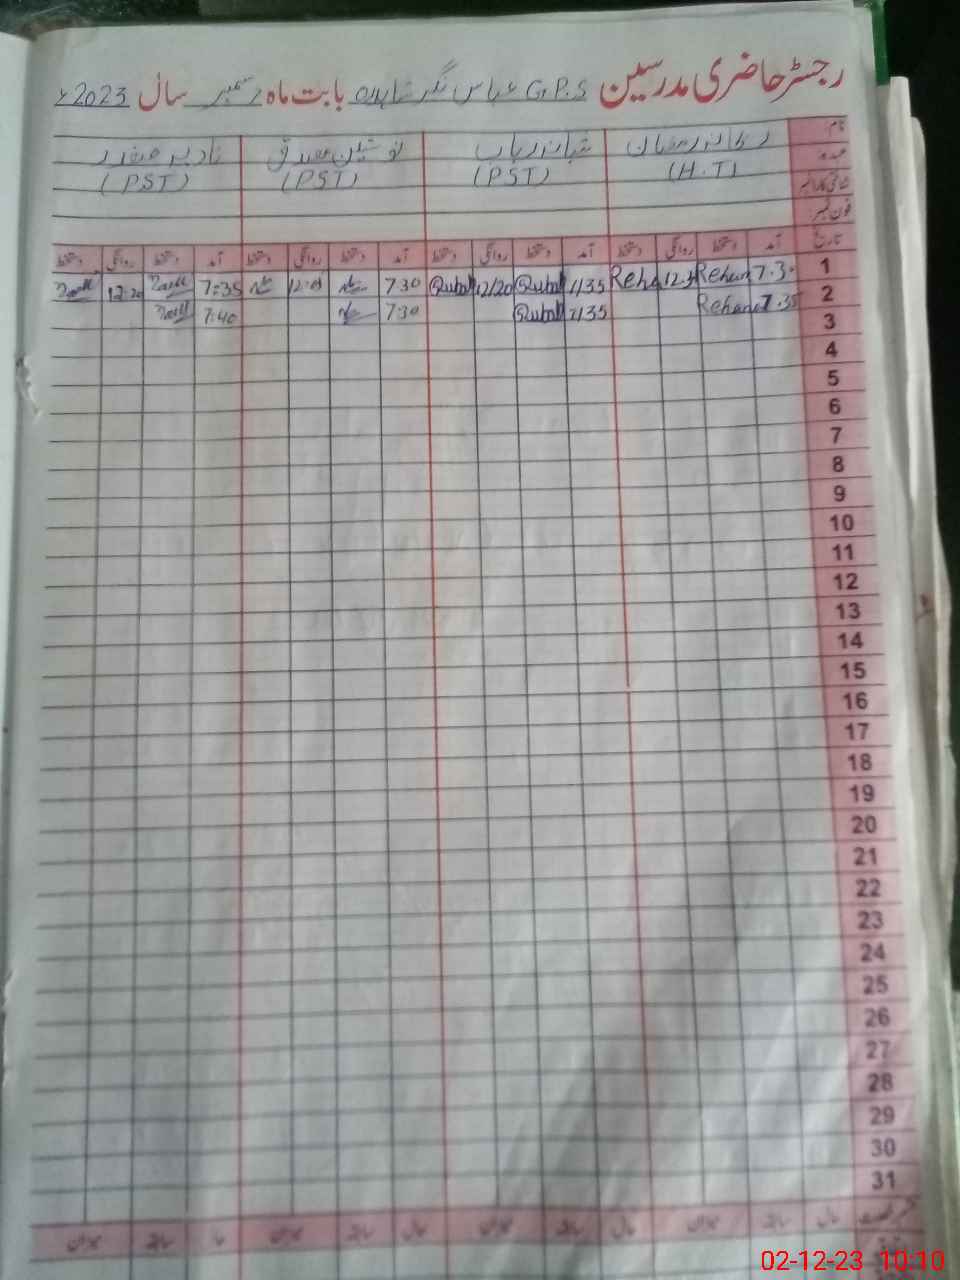 رجسٹر حاضری مدرسین G.P.S عباس نگر شاہدرہ بابت ماہ دسمبر سال 2023ء
نام ریحانہ رمضان شبانہ رباب نوشین صدیق نادیہ صفدر
عہدہ (H.T) (PST) (PST) (PST)
شناختی کارڈ نمبر
فون نمبر
تاریخ آمد دستخط روانگی دستخط آمد دستخط روانگی دستخط آمد دستخط روانگی دستخط آمد دستخط روانگی دستخط
1 7.3 Rehana 12.3 Reha 7/35 Rubab 12/20 Rubab 7 30 7:35 12:20
2 7.35 Rehana 7/35 Rubab 7:30 7:40
3
4
5
6
7
8
9
10
11
12
13
14
15
16
17
18
19
20
21
22
23
24
25
26
27
28
29
30
31
حال سابقہ میزان حال سابقہ میزان حال سابقہ میزان سابقہ میزان
02-12-23 10:10